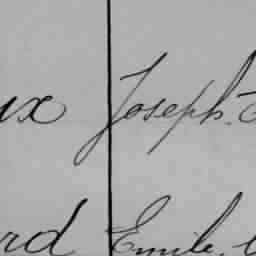 ux Joseph.
rd Emile.